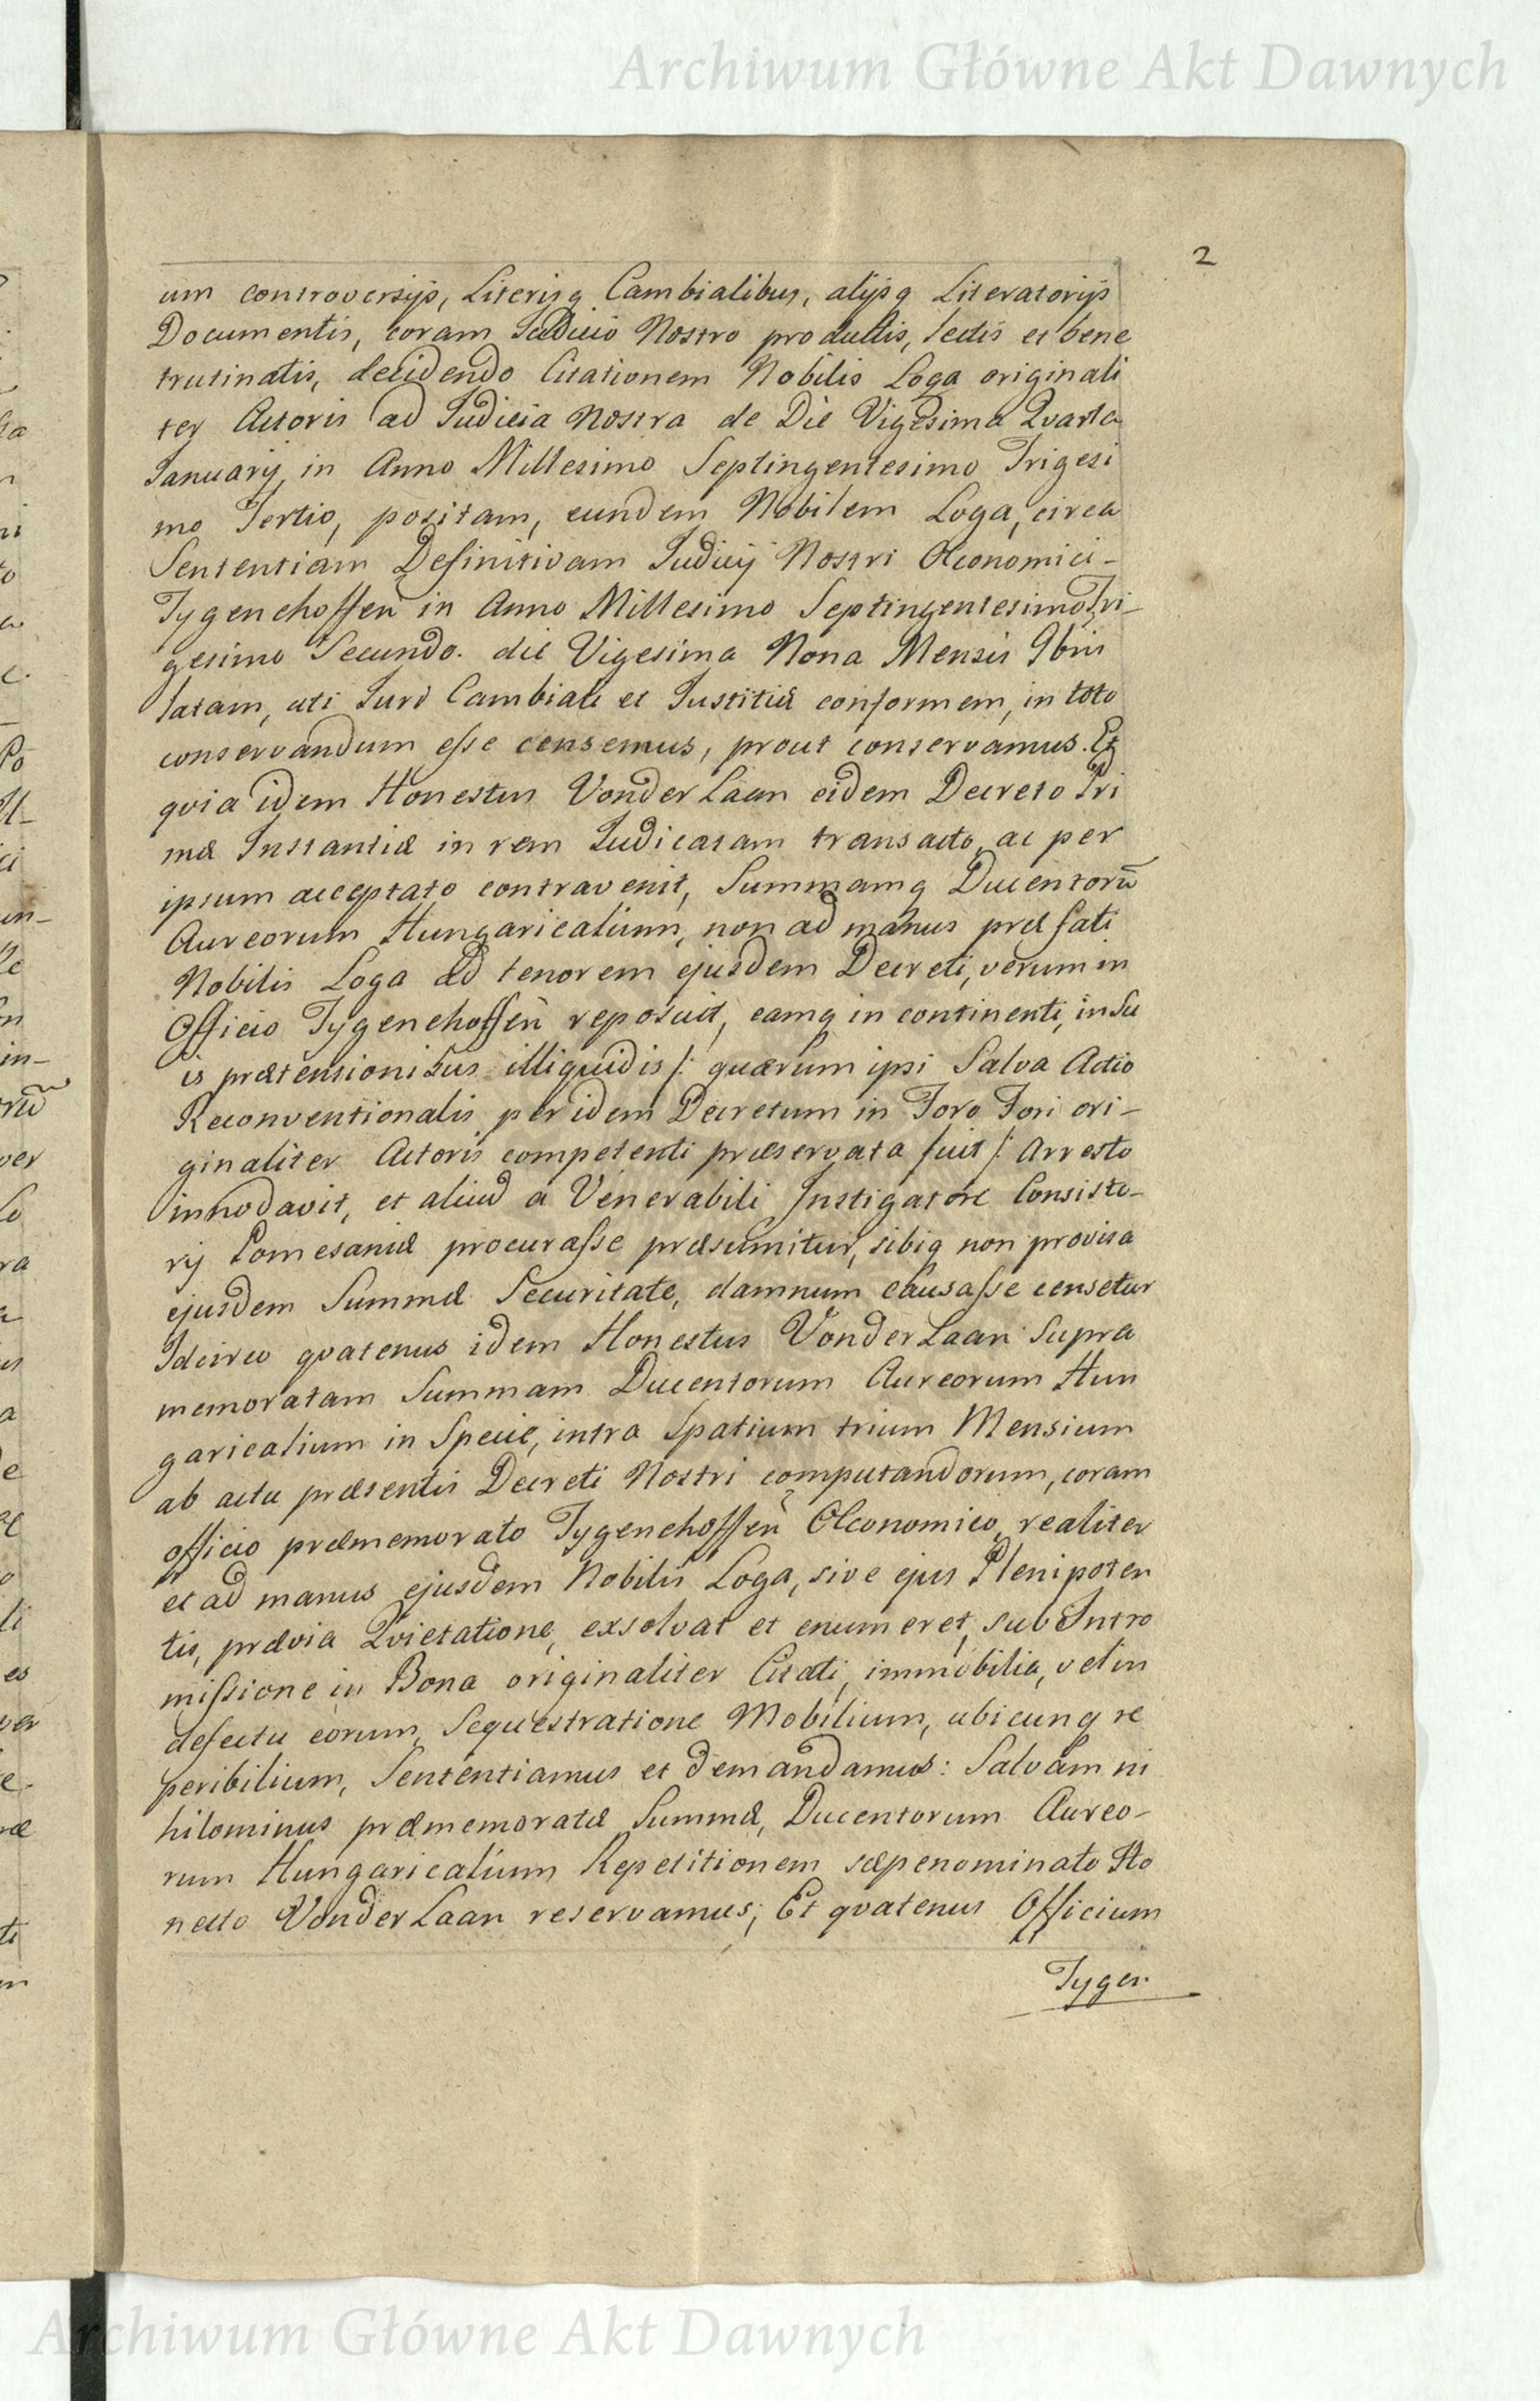 Archiwum Główne Akt Dawnych
2
um controversijs, Literisq Cambialibus, alijsq Literatorijs
Documentis, coram Judicio Nostro productis, lectis et bene
trutinatis, decidendo Citationem Nobilis Loga originali
ter Actoris ad Judicia Nostra de Die Vigesima Qvarta
Januarij in Anno Millesimo Septingentesimo Trigesi
mo Tertio, positam, eundem Nobilem Loga, circa
Sententiam Definitivam Judicij Nostri Oeconomici-
Tygenhoffen in Anno Millesimo Septingentesimo Tri-
gesimo Secundo. die Vigesima Nona Mensis 9bris
latam, uti Juri Cambiali et Justitiæ conformem, in toto
conservandum esse censemus, prout conservamus. Et
qvia idem Honestus Vonder Laan eidem Decreto Pri
mæ Instantiæ in rem Judicatam transacto, ac per
ipsum acceptato contravenit, Summamq Ducentorū
Aureorum Hungaricalium, non ad manus præfati
Nobilis Loga ad tenorem ejusdem Decreti, verum in
Officio Tygenhoffen reposuit, eamq in continenti, in Su
is prætensionibus illiquidis /: quarum ipsi Salva Actio
Reconventionalis per idem Decretum in Foro Fori ori-
ginaliter Actoris competenti præservata fuit :/ Arresto
innodavit, et aliud a Venerabili Instigatore Consisto-
rij Pomesaniæ procurasse præsumitur, sibiq non provisa
ejusdem Summæ Securitate, damnum causasse censetur
Idcirco qvatenus idem Honestus Vonder Laan Supra
memoratam Summam Ducentorum Aureorum Hun
garicalium in Specie, intra Spatium trium Mensium
ab actu præsentis Decreti Nostri computandorum, coram
officio præmemorato Tygenhoffen Oeconomico, realiter
et ad manus ejusdem Nobilis Loga, sive ejus Plenipoten
tis, prævia Qvietatione, exsolvat et enumeret, sub Intro
missione in Bona originaliter Citati, immobilia, vel in
defectu eorum, Sequestratione Mobilium, ubicunq re
peribilium, Sententiamus et demandamus: Salvam ni
hilominus præmemoratæ Summæ, Ducentorum Aureo-
rum Hungaricalium Repetitionem sæpenominato Ho
nesto Vonder Laan reservamus; Et qvatenus Officium
Tygen
Archiwum Główne Akt Dawnych